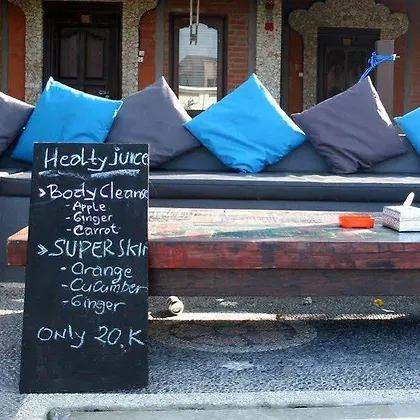 Healty juice
> Body Cleanse
- Apple
- Ginger
- Carrot
> SUPER SKIN
- Orange
- Cucumber
- Ginger
only 20,K